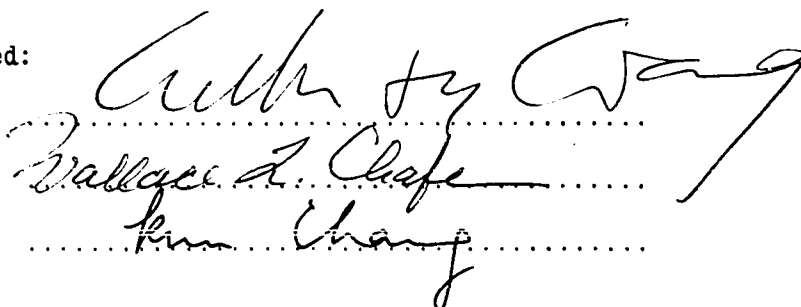 ed:
Wang
Wallace L. Chafe
Kun Chang